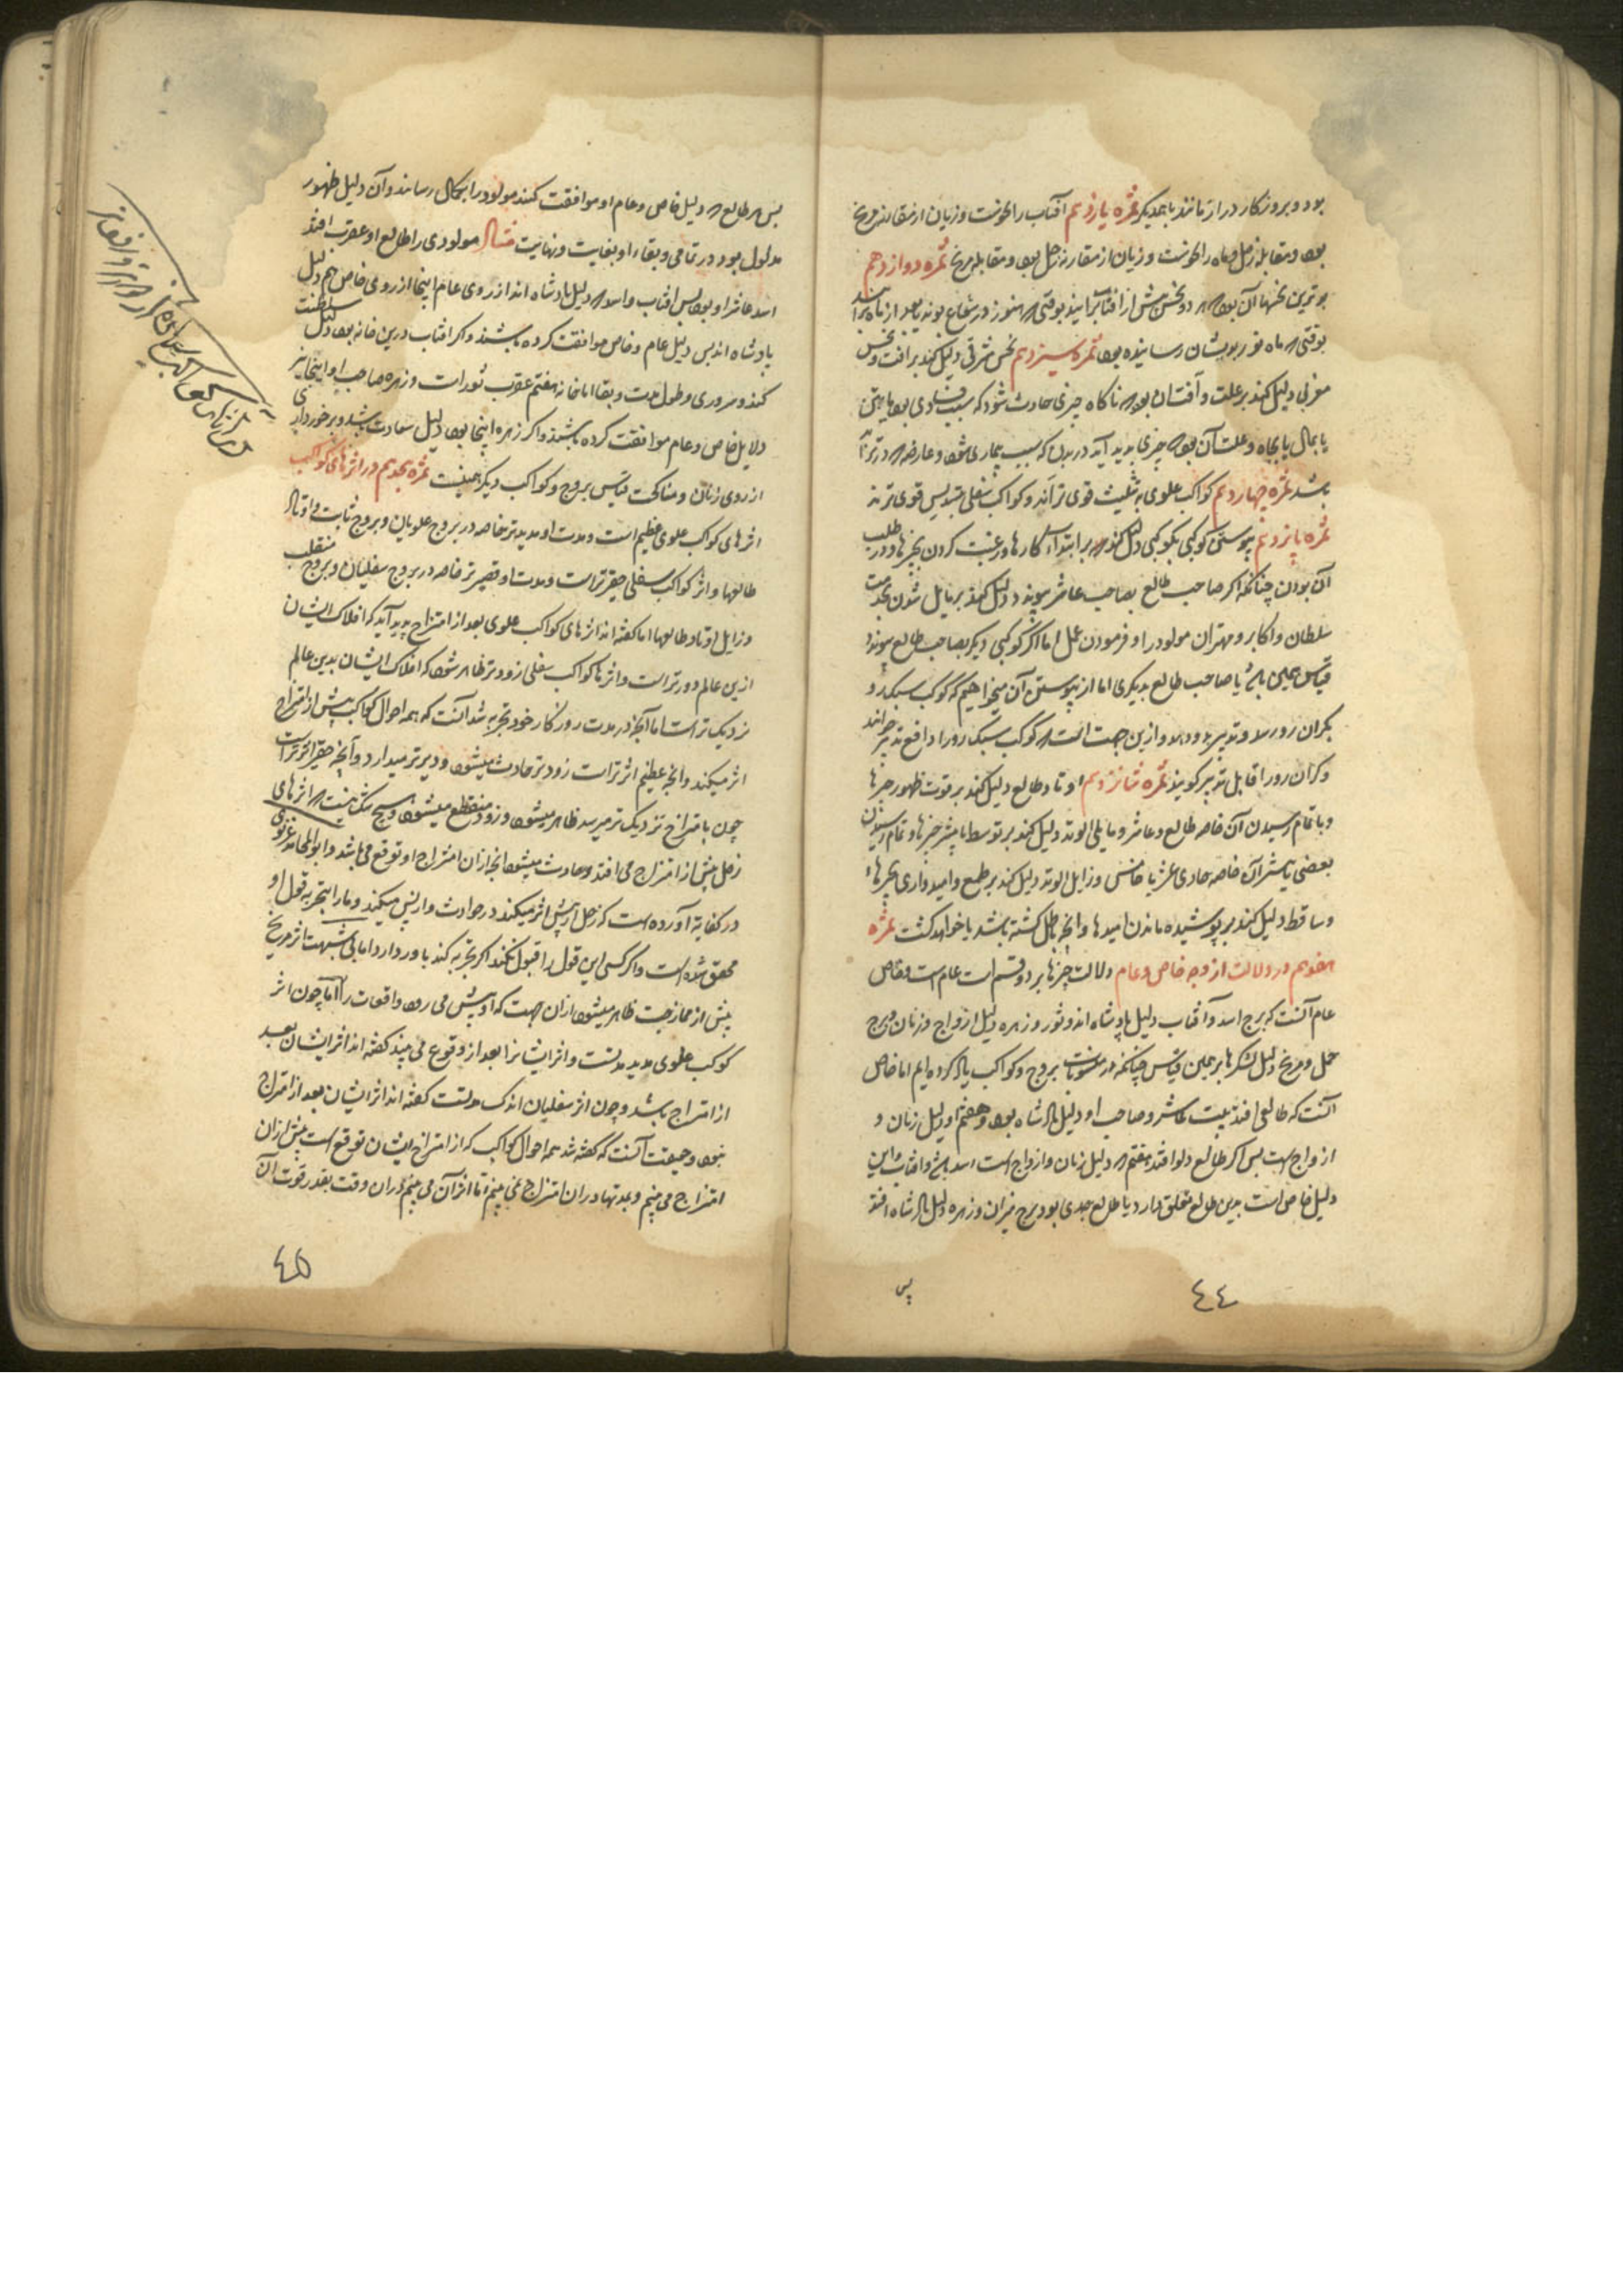 بود و بروزکار دراز مانند با همدیکر ثمره یازدهم آفتاب را نحوست و زیان از مقارنه مریخ
بود و مقابله زحل و ماه را نحوست و زیان از مقارنه زحل بود و مقابله مریخ ثمره دوازدهم
بوقتی که ماه نور بدیشان رسانیده بود ثمره سیزدهم نحس مشرقی دلیل کند بر آفت و نحس
مغربی دلیل کند بر علت و آفت آن بود که ناکاه چیزی حادث شود که سبب فسادی بود یا بتن
یا بمال یا بجاه و علت آن بود که چیزی پدید آید در بدن که سبب بیماری شود و عارضه که در تن
باشد ثمره چهاردهم کواکب علوی به تثلیث قوی تر آند و کواکب سفلی بتسدیس قوی ترند
ثمره پانزدهم پیوستن کوکبی بکوکبی دلیل کند که بر ابتداء کارها و رغبت کردن بچیزها و در طلب
آن بودن چنانکه اکر صاحب طالع بصاحب عاشر پیوندد دلیل کند بر مایل شدن بخدمت
سلطان و اکابر و مهتران مولود را و فرمودن عمل اما اکر کوکبی دیکر بصاحب طالع پیوندد
قیاس همین باشد یا صاحب طالع بدیکری اما از پیوستن آن میخواهیم که کوکب سبکرو
بکران رو رسد و تدبیر بدو دهد و ازین جهت است که کوکب سبک رو را دافع تدبیر خوانند
و کران رو را قابل تدبیر کویند ثمره شانزدهم اوتاد طالع دلیل کند بر قوت ظهور چیزها
و بتمام رسیدن آن خاصه طالع و عاشر و مایلی الوتد دلیل کند بر توسط یا بیشتر چیزها و تمام رسیدن
بعضی یا بیشتر آن خاصه حادی عشر یا خامس و زایل الوتد دلیل کند بر طمع و امیدواری بچیزها
و ساقط دلیل کند بر پوشیده ماندن امیدها و آنچه باطل کشته باشد یا خواهد کشت ثمره
هفدهم در دلالت از وجه خاص و عام دلالت چیزها بر دو قسم است عام است و خاص
عام آنست که برج اسد و آفتاب دلیل پادشاه اند و ثور و زهره دلیل ازواج و زنان و برج
حمل و مریخ دلیل لشکرها بر همین قیاس چنانکه در منسوبات بروج و کواکب یاد کرده ایم اما خاص
آنست که طالعی افتد بیت عاشر و صاحب او دلیل پادشاه بود و هفتم او دلیل زنان و
ازواج است پس اکر طالع دلو افتد هفتم که دلیل زنان و ازواج است اسد باشد و آفتاب و این
دلیل خاص است بدین طالع تعلق دارد یا طالع جدی بود برج میزان و زهره دلیل پادشاه افتد
پس
٤٤
پس هر طالع که دلیل خاص و عام او موافقت کنند مولود را بکمال رسانند و آن دلیل ظهور
مدلول بود در تمامی و بقاء او بغایت و نهایت مثال مولودی را طالع او عقرب افتد
اسد عاشر او بود پس آفتاب و اسد که دلیل پادشاه اند از روی عام اینجا از روی خاص هم دلیل
پادشاه اند پس دلیل عام و خاص موافقت کرده باشند و اکر آفتاب درین خانه بود دلیل سلطنت
کند و سروری و طول مدت و بقا اما خانه هفتم عقرب ثور است و زهره صاحب او اینجا نیز
دلایل خاص و عام موافقت کرده باشند و اکر زهره اینجا بود دلیل سعادت باشد و برخورداری
از روی زنان و مناکحت قیاس بروج و کواکب دیکر همینست ثمره هجدهم در اثرهای کواکب
اثرهای کواکب علوی عظیم است و مدت او مدیدتر خاصه در بروج علویان و بروج ثابت و اوتاد
طالعها و اثر کواکب سفلی حقیرتر است و مدت او قصیرتر خاصه در بروج سفلیان و بروج منقلب
و زایل اوتاد طالعها اما کفته اند اثرهای کواکب علوی بعد از امتزاج پدید آید که افلاک ایشان
ازین عالم دورتر است و اثرهاء کواکب سفلی زودتر ظاهر شود که افلاک ایشان بدین عالم
نزدیک تر است اما آنچه در مدت روزکار خود تجربه شد آنست که همه احوال کواکب پیش از امتزاج
اثر میکند و آنچه عظیم اثرتر است زودتر حادث میشود و دیرتر میدارد و آنچه حقیر اثرتر است
چون بامتزاج نزدیک تر میرسد ظاهر میشود و زود منقطع میشود و هیچ شک نیست که اثرهای
زحل پیش از امتزاج می افتد و حادث میشود آنچه از آن امتزاج او توقع می باشد و ابوالمحامد غزنوی
در کفایه آورده است که زحل از پیش اثر میکند در حوادث و از پس میکند و ما را بتجربه قول او
محقق شده است و اکر کسی این قول را قبول نکند اکر تجربه کند باور دارد اما بی شبهت اثر مریخ
پیش از ممازجت ظاهر میشود از آن جهت که او پیش می رود واقعات را اما چون اثر
کوکب علوی مدید مدتست و اثر ایشانرا بعد از وقوع می بینند کفته اند اثر ایشان بعد
از امتزاج باشد و چون اثر سفلیان اندک مدتست کفته اند اثر ایشان بعد از امتزاج
نبود و حقیقت آنست که کفته شد همه احوال کواکب که از امتزاج ایشان توقع است پیش از آن
امتزاج می بینم و بمدتها در آن امتزاج نمی بینم اما اثر آن می بینم در آن وقت بقدر قوت آن
٤۵